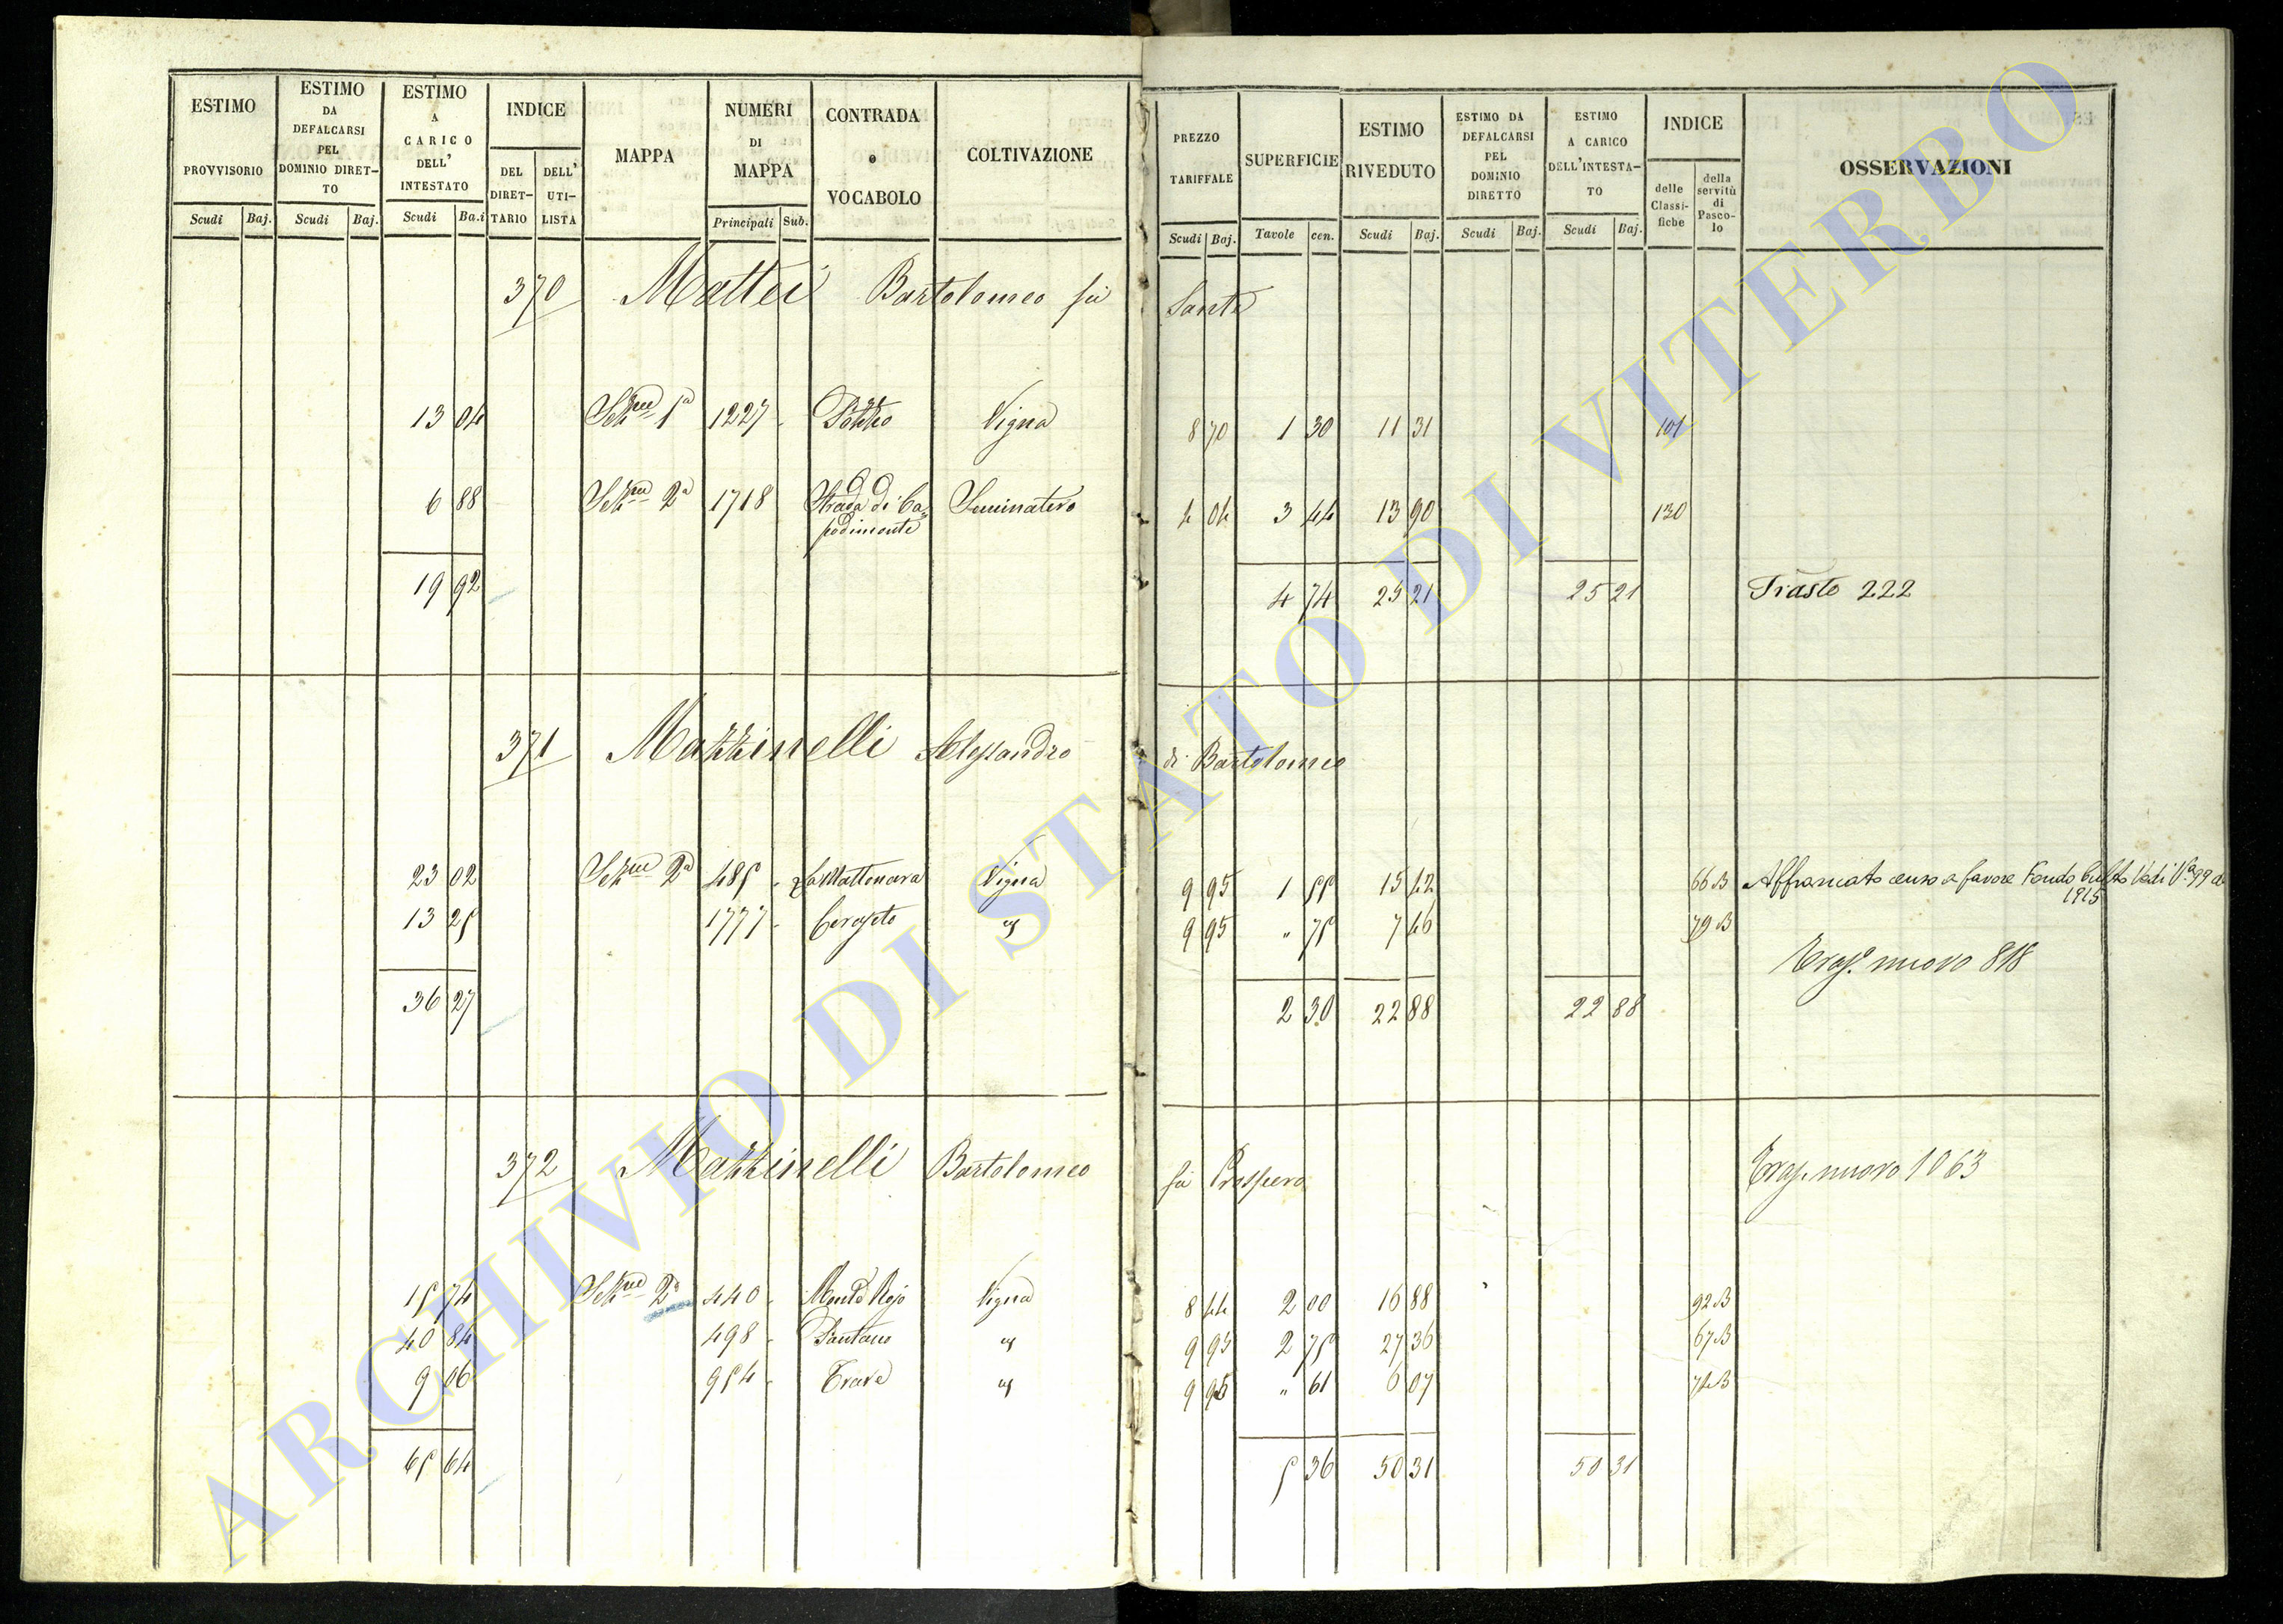 ESTIMO PROVVISORIO Scudi Baj.
ESTIMO DA DEFALCARSI PEL DOMINIO DIRET-TO Scudi Baj.
ESTIMO A CARICO DELL' INTESTATO Scudi Ba.i
INDICE DEL DIRET-TARIO DELL' UTI-LISTA
MAPPA
NUMERI DI MAPPA Principali Sub.
CONTRADA o VOCABOLO
COLTIVAZIONE
PREZZO TARIFFALE Scudi Baj.
SUPERFICIE Tavole cen.
ESTIMO RIVEDUTO Scudi Baj.
ESTIMO DA DEFALCARSI PEL DOMINIO DIRETTO Scudi Baj.
ESTIMO A CARICO DELL'INTESTA-TO Scudi Baj.
INDICE delle Classi-fiche della servitù di Pasco-lo
OSSERVAZIONI
370 Mattei Bartolomeo fu Sante
13 04 Sezne 1a 1227 Vigna 8 70 1 30 11 31 101
6 88 Sezne 2a 1718 Strada di Ca= Seminativo 4 04 3 44 13 90 130
podimonte
19 92 4 74 25 21 25 21 222
371 Mazzinelli Alessandro di Bartolomeo
23 02 Sezne 2a 485 La Mattonara Vigna 9 95 1 55 15 42 66 B Affrancato censo a favore Fondo Culto Vedi Va 99 del
1915
13 25 1777 9 95 " 75 7 46 79 B
nuovo 818
36 27 2 30 22 88 22 88
372 Mazzinelli Bartolomeo fu Prospero nuovo 1063
15 74 Sezne 2a 440 Vigna 8 44 2 00 16 88 92 B
40 84 498 Pantano 9 95 2 75 27 36 67 B
9 06 954 9 95 " 61 6 07 74 B
65 64 5 36 50 31 50 31
ARCHIVIO DI STATO DI VITERBO